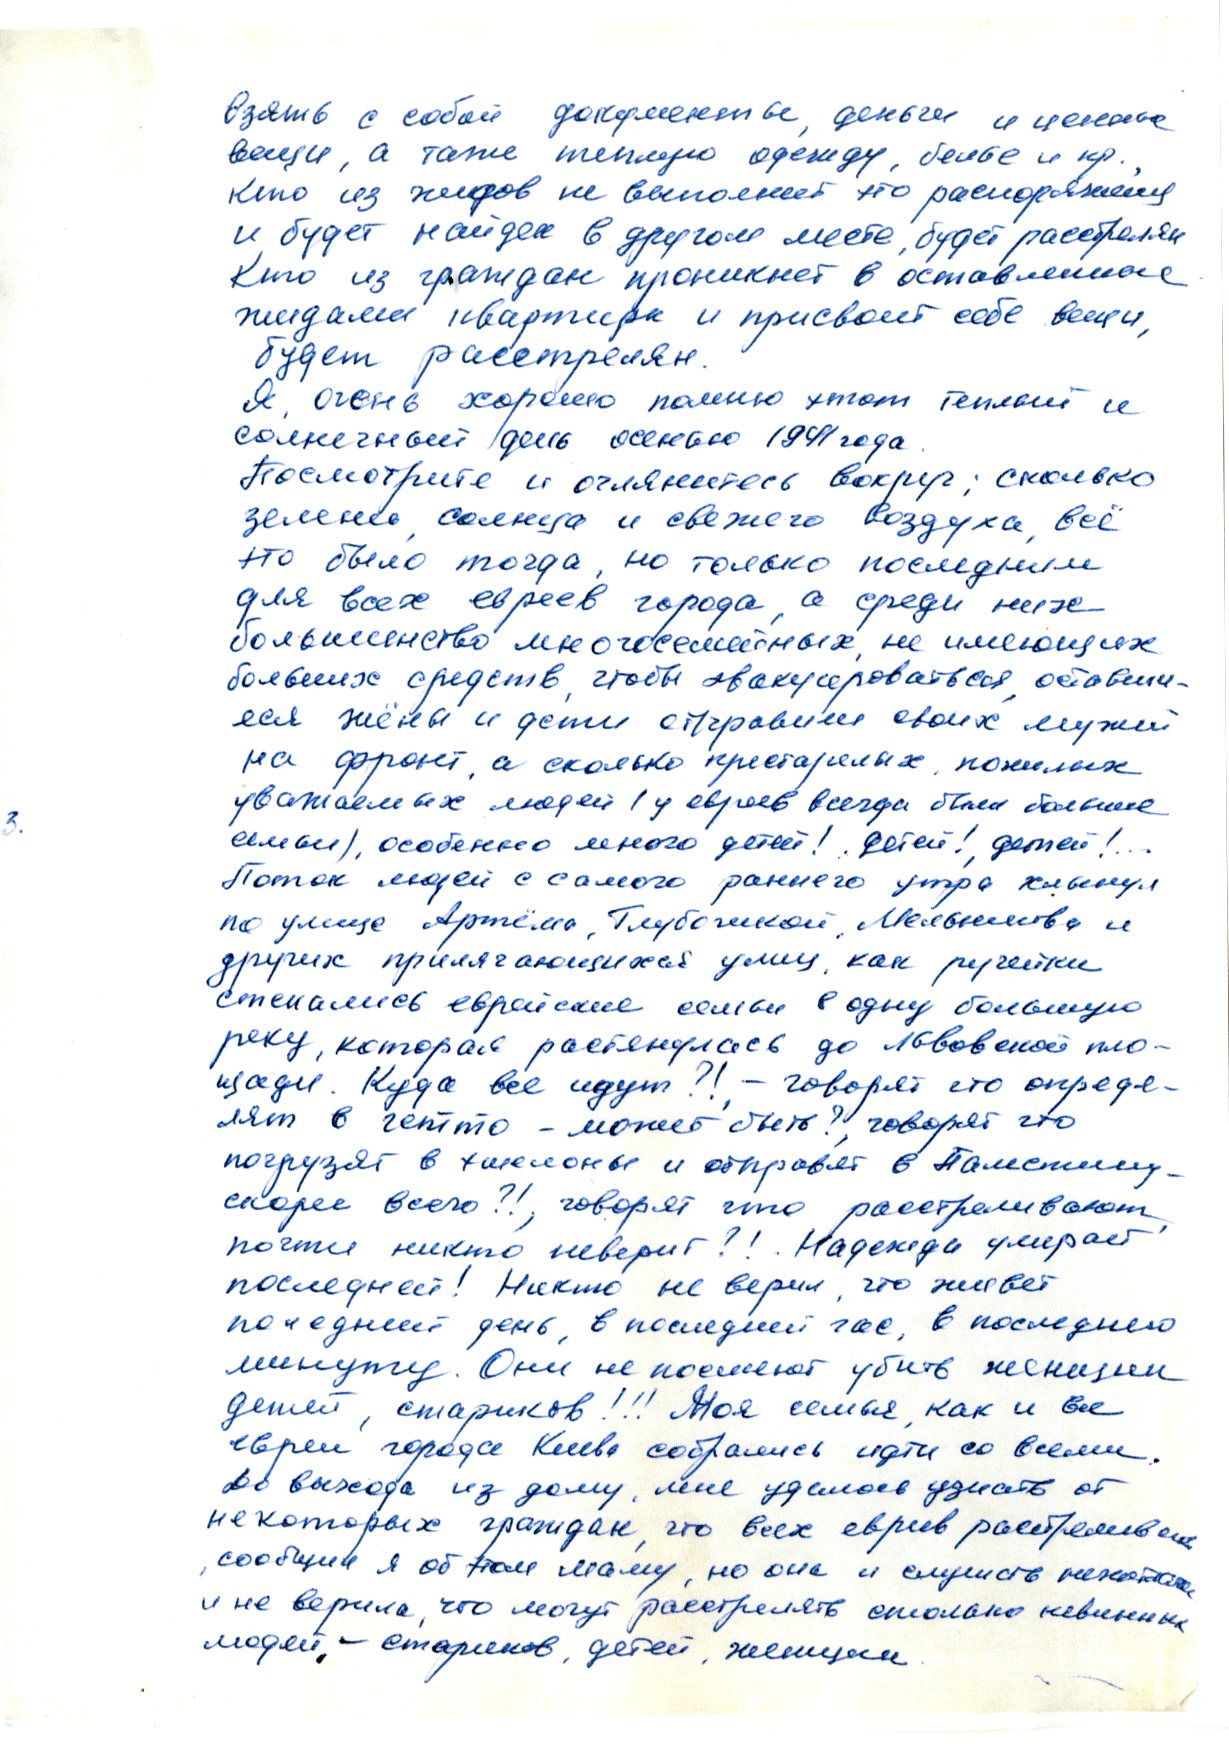 Взять с собой документы, деньги и ценные
вещи, а также теплую одежду, белье и пр.
Кто из жидов не выполнит это распоряжение
и будет найден в другом месте, будет расстрелян
Кто из граждан проникнет в оставленные
жидами квартиры и присвоит себе вещи,
будет расстрелян.
Я, очень хорошо помню этот теплый и
солнечный день осенью 1941 года.
Посмотрите и оглянитесь вокруг; сколько
зелени, солнца и свежего воздуха, всё
это было тогда, но только последним
для всех евреев города, а среди них
большинство многосемейных, не имеющих
больших средств, чтобы эвакуироваться, оставши-
еся жёны и дети отправили своих мужей
на фронт, а сколько престарелых, пожилых
уважаемых людей (у евреев всегда были большие
семьи), особенно много детей! Детей!, детей!...
3.
Поток людей с самого раннего утра хлынул
по улице Артёма, Глубочицкой, Мельникова и
других прилягающихся улиц, как ручейки
стекались еврейские семьи в одну большую
реку, которая растянулась до Львовской пло-
щади. Куда все идут?!, - говорят что опреде-
лят в гетто - может быть?, говорят что
погрузят в эшелоны и отправят в Палестину -
скорее всего?!, говорят что расстреливают,
почти никто неверит?!. Надежда умирает
последней! Никто не верил, что живет
последний день, в последний час, в последнюю
минуту. Они не посмеют убить женщин
детей, стариков!!! Моя семья, как и все
евреи города Киева собрались идти со всеми.
До выхода из дому, мне удалось узнать от
некоторых граждан, что всех евреев расстреливают
, сообщил я об этом маму, но она и слушать нехотела
и не верила, что могут расстрелять столько невинных
людей, - стариков, детей, женщин.